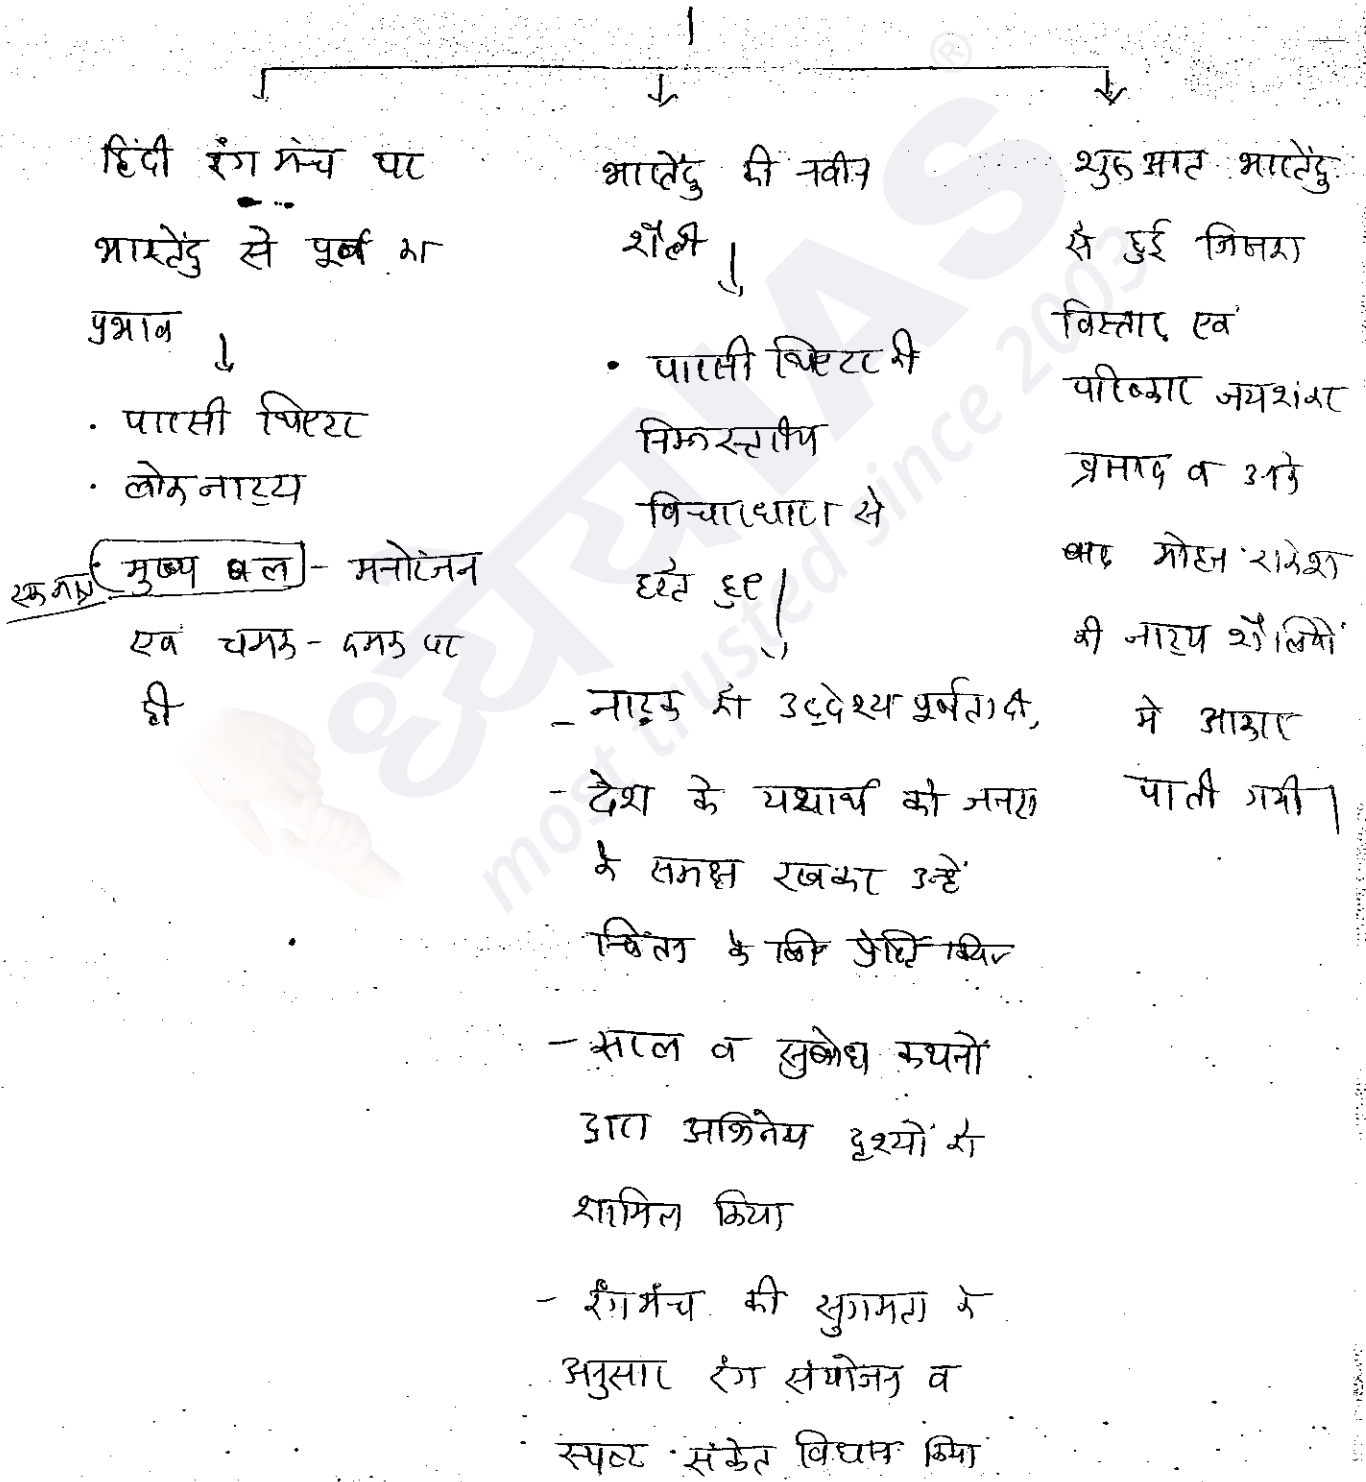 हिंदी रंग मंच पर
भारतेंदु से पूर्व का
प्रभाव
• पारसी थिएटर
• लोकनाट्य
एकमात्र
मुख्य बल - मनोरंजन
एवं चमक - दमक पर
ही
भारतेंदु की नवीन
शैली
• पारसी थिएटर की
निम्नस्तरीय
विचारधारा से
हटते हुए
- नाटक को उद्देश्य पूर्णता दी,
- देश के यथार्थ को जनता
के समक्ष रखकर उन्हें
चिंतन के लिए प्रेरित किया
- सरल व सुबोध कथनों
द्वारा अभिनेय दृश्यों को
शामिल किया
- रंगमंच की सुगमता के
अनुसार रंग संयोजन व
स्पष्ट संकेत विधान किया
शुरुआत भारतेंदु
से हुई जिसका
विस्तार एवं
परिष्कार जयशंकर
प्रसाद व उनके
बाद मोहन राकेश
की नाट्य शैलियों
में आकार
पाती गयी।
ध्येय IAS ®
most trusted since 2003